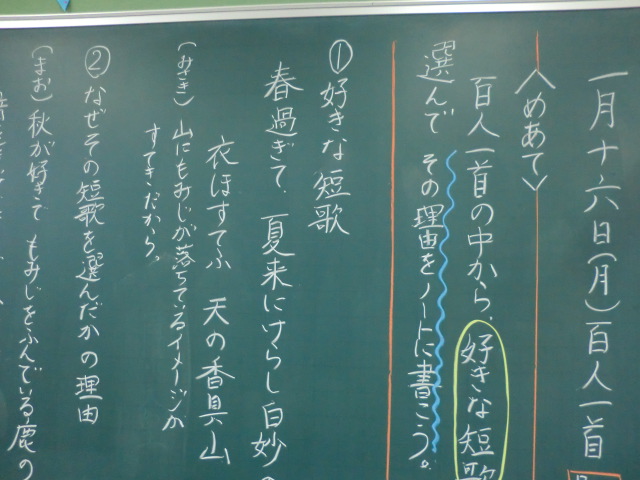 一月十六日(月)百人一首
<めあて>
百人一首の中から、好きな短歌
選んで その理由をノートに書こう。
① 好きな短歌
春過ぎて、夏来にけらし白妙の
衣ほすてふ 天の香具山
(みさき) 山にもみじが落ちているイメージが
すてきだから。
② なぜその短歌を選んだかの理由
(まお) 秋が好きで もみじをふんでいる鹿の